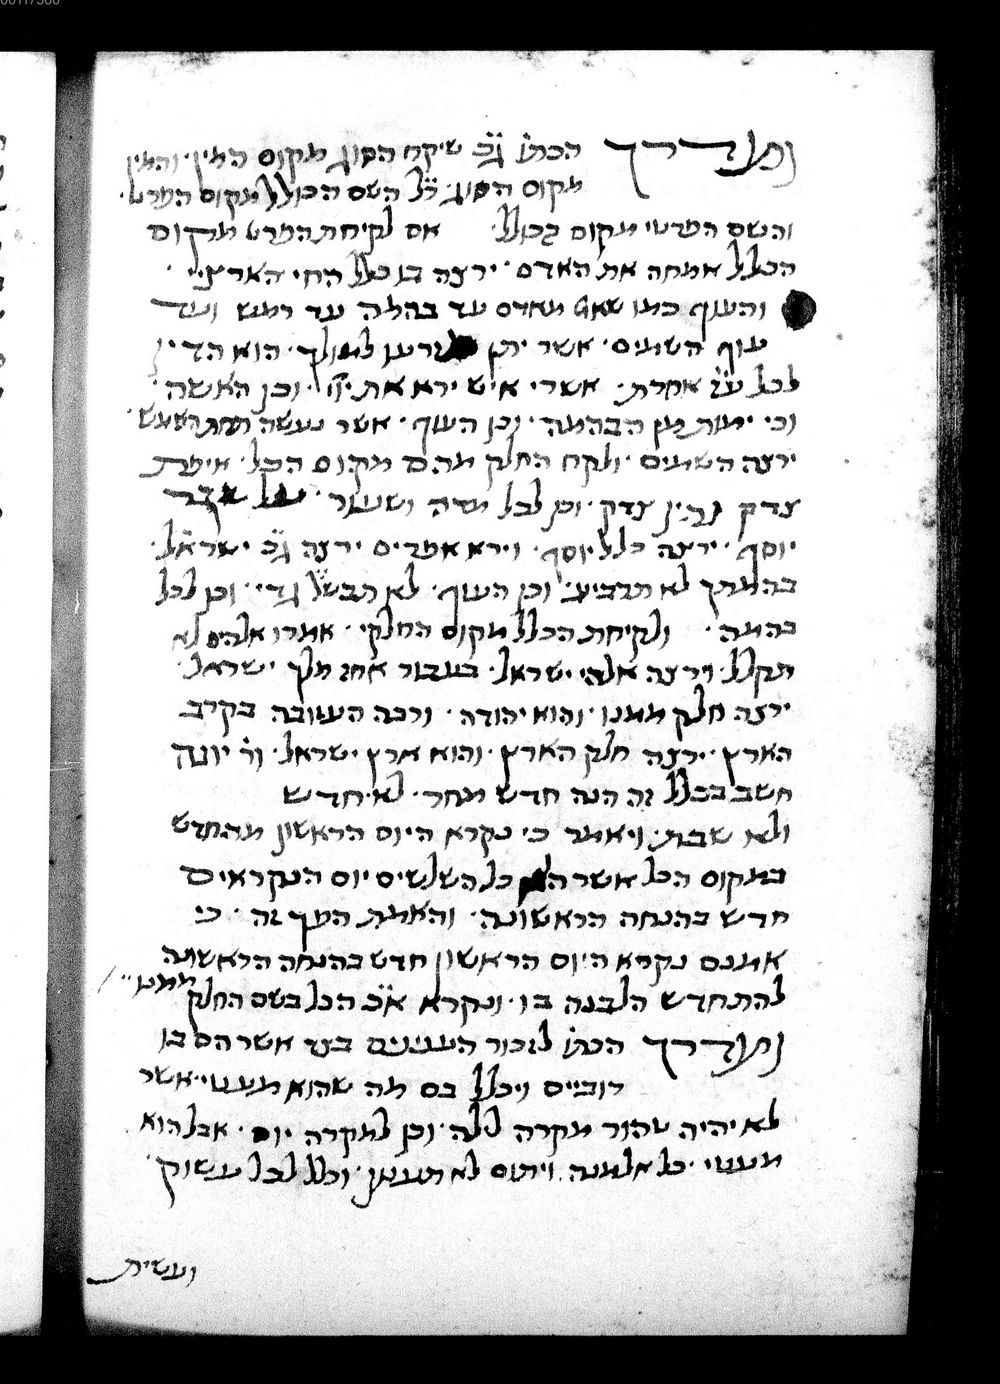 ומדרך הכתו׳ ג״כ שיקח הסוג מקום המין. והמין
מקום הסוג. ר״ל השם הכולל מקום הפרטי.
והשם הפרטי מקום הכולל. אם לקיחת הפרט מקום
הכלל אמחה את האדם. ירצה בו כלל החי הארציי.
והעוף כמו שאמ׳ מאדם עד בהמה עד רמש ועד
עוף השמים. אשר יתן מזרעו למולך. הוא הדין
לכל ע״ז אחרת. אשרי איש ירא את ייי. וכן האשה.
וכי ימות מן הבהמה. וכן העוף. אשר נעשה תחת השמש.
ירצה השמים. ולקח החלק מהם מקום הכל. איפת
צדק והין צדק. וכן לכל מדה ושעור. על שבר
יוסף. ירצה כלל יוסף. וירא אפרים ירצה ג״כ ישראל.
בהמתך לא תרביע. וכן העוף. לא תבשל גדי. וכן לכל
בהמה. ולקיחת הכלל מקום החלקי. אמרו אלהים לא
תקלל. וירצה אלהי ישראל. בעבור אחז מלך ישראל.
ירצה חלק ממנו. והוא יהודה. ורבה העזובה בקרב
הארץ. ירצה חלק הארץ. והוא ארץ ישראל. ור׳ יונה
חשב בכלל זה הנה חדש מחר. לא חדש
ולא שבת. ויאמר כי נקרא היום הראשון מהחדש
במקום הכל אשר הם כל השלשים יום הנקראים
חדש בהנחה הראשונה. והאמת הפך זה. כי
אמנם נקרא היום הראשון חדש בהנחה הראשונה
להתחדש הלבנה בו. ונקרא א״כ הכל בשם החלק ממנו
ומדרך הכתו׳ לזכור הענינים בצד אשר הם בו
רוביים ויכלל בם מה שהוא מעטי. אשר
לא יהיה טהור מקרה לילה. וכן למקרה יום. אבל הוא
מעטי. כל אלמנה ויתום לא תענון. וכלל לכל עשוק.
ועשית